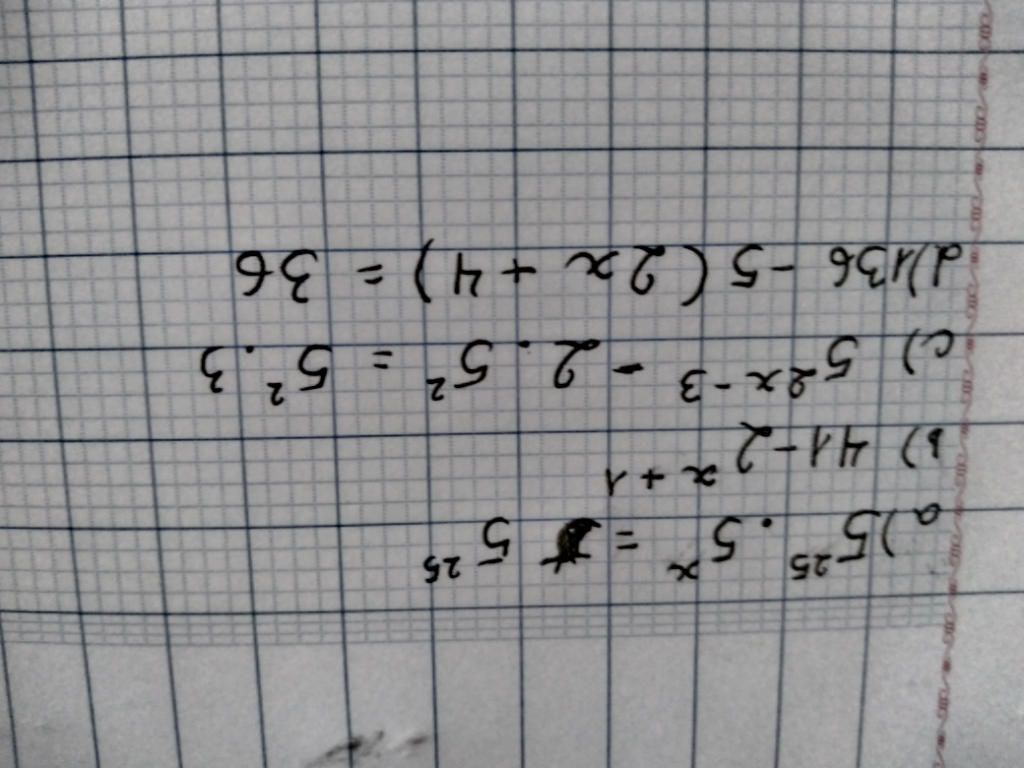 a) 5²⁵ . 5ˣ = 5²⁵
b) 41 - 2ˣ⁺¹
c) 5²ˣ⁻³ - 2 . 5² = 5² . 3
d) 136 - 5 (2x + 4) = 36